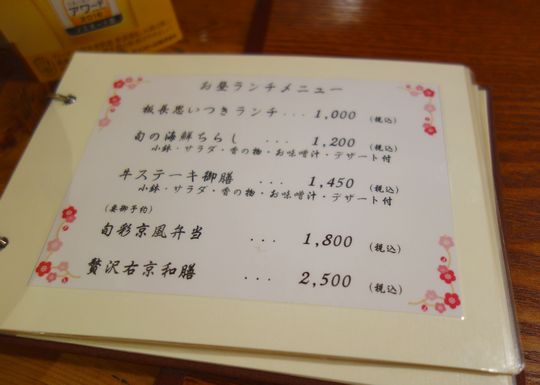 アワード
お昼ランチメニュー
板長思いつきランチ... 1,000 (税込)
旬の海鮮ちらし ... 1,200 (税込)
小鉢・サラダ・香の物・お味噌汁・デザート付
牛ステーキ御膳 ... 1,450 (税込)
小鉢・サラダ・香の物・お味噌汁・デザート付
(要御予約)
旬彩京風弁当 ... 1,800 (税込)
贅沢右京和膳 ... 2,500 (税込)